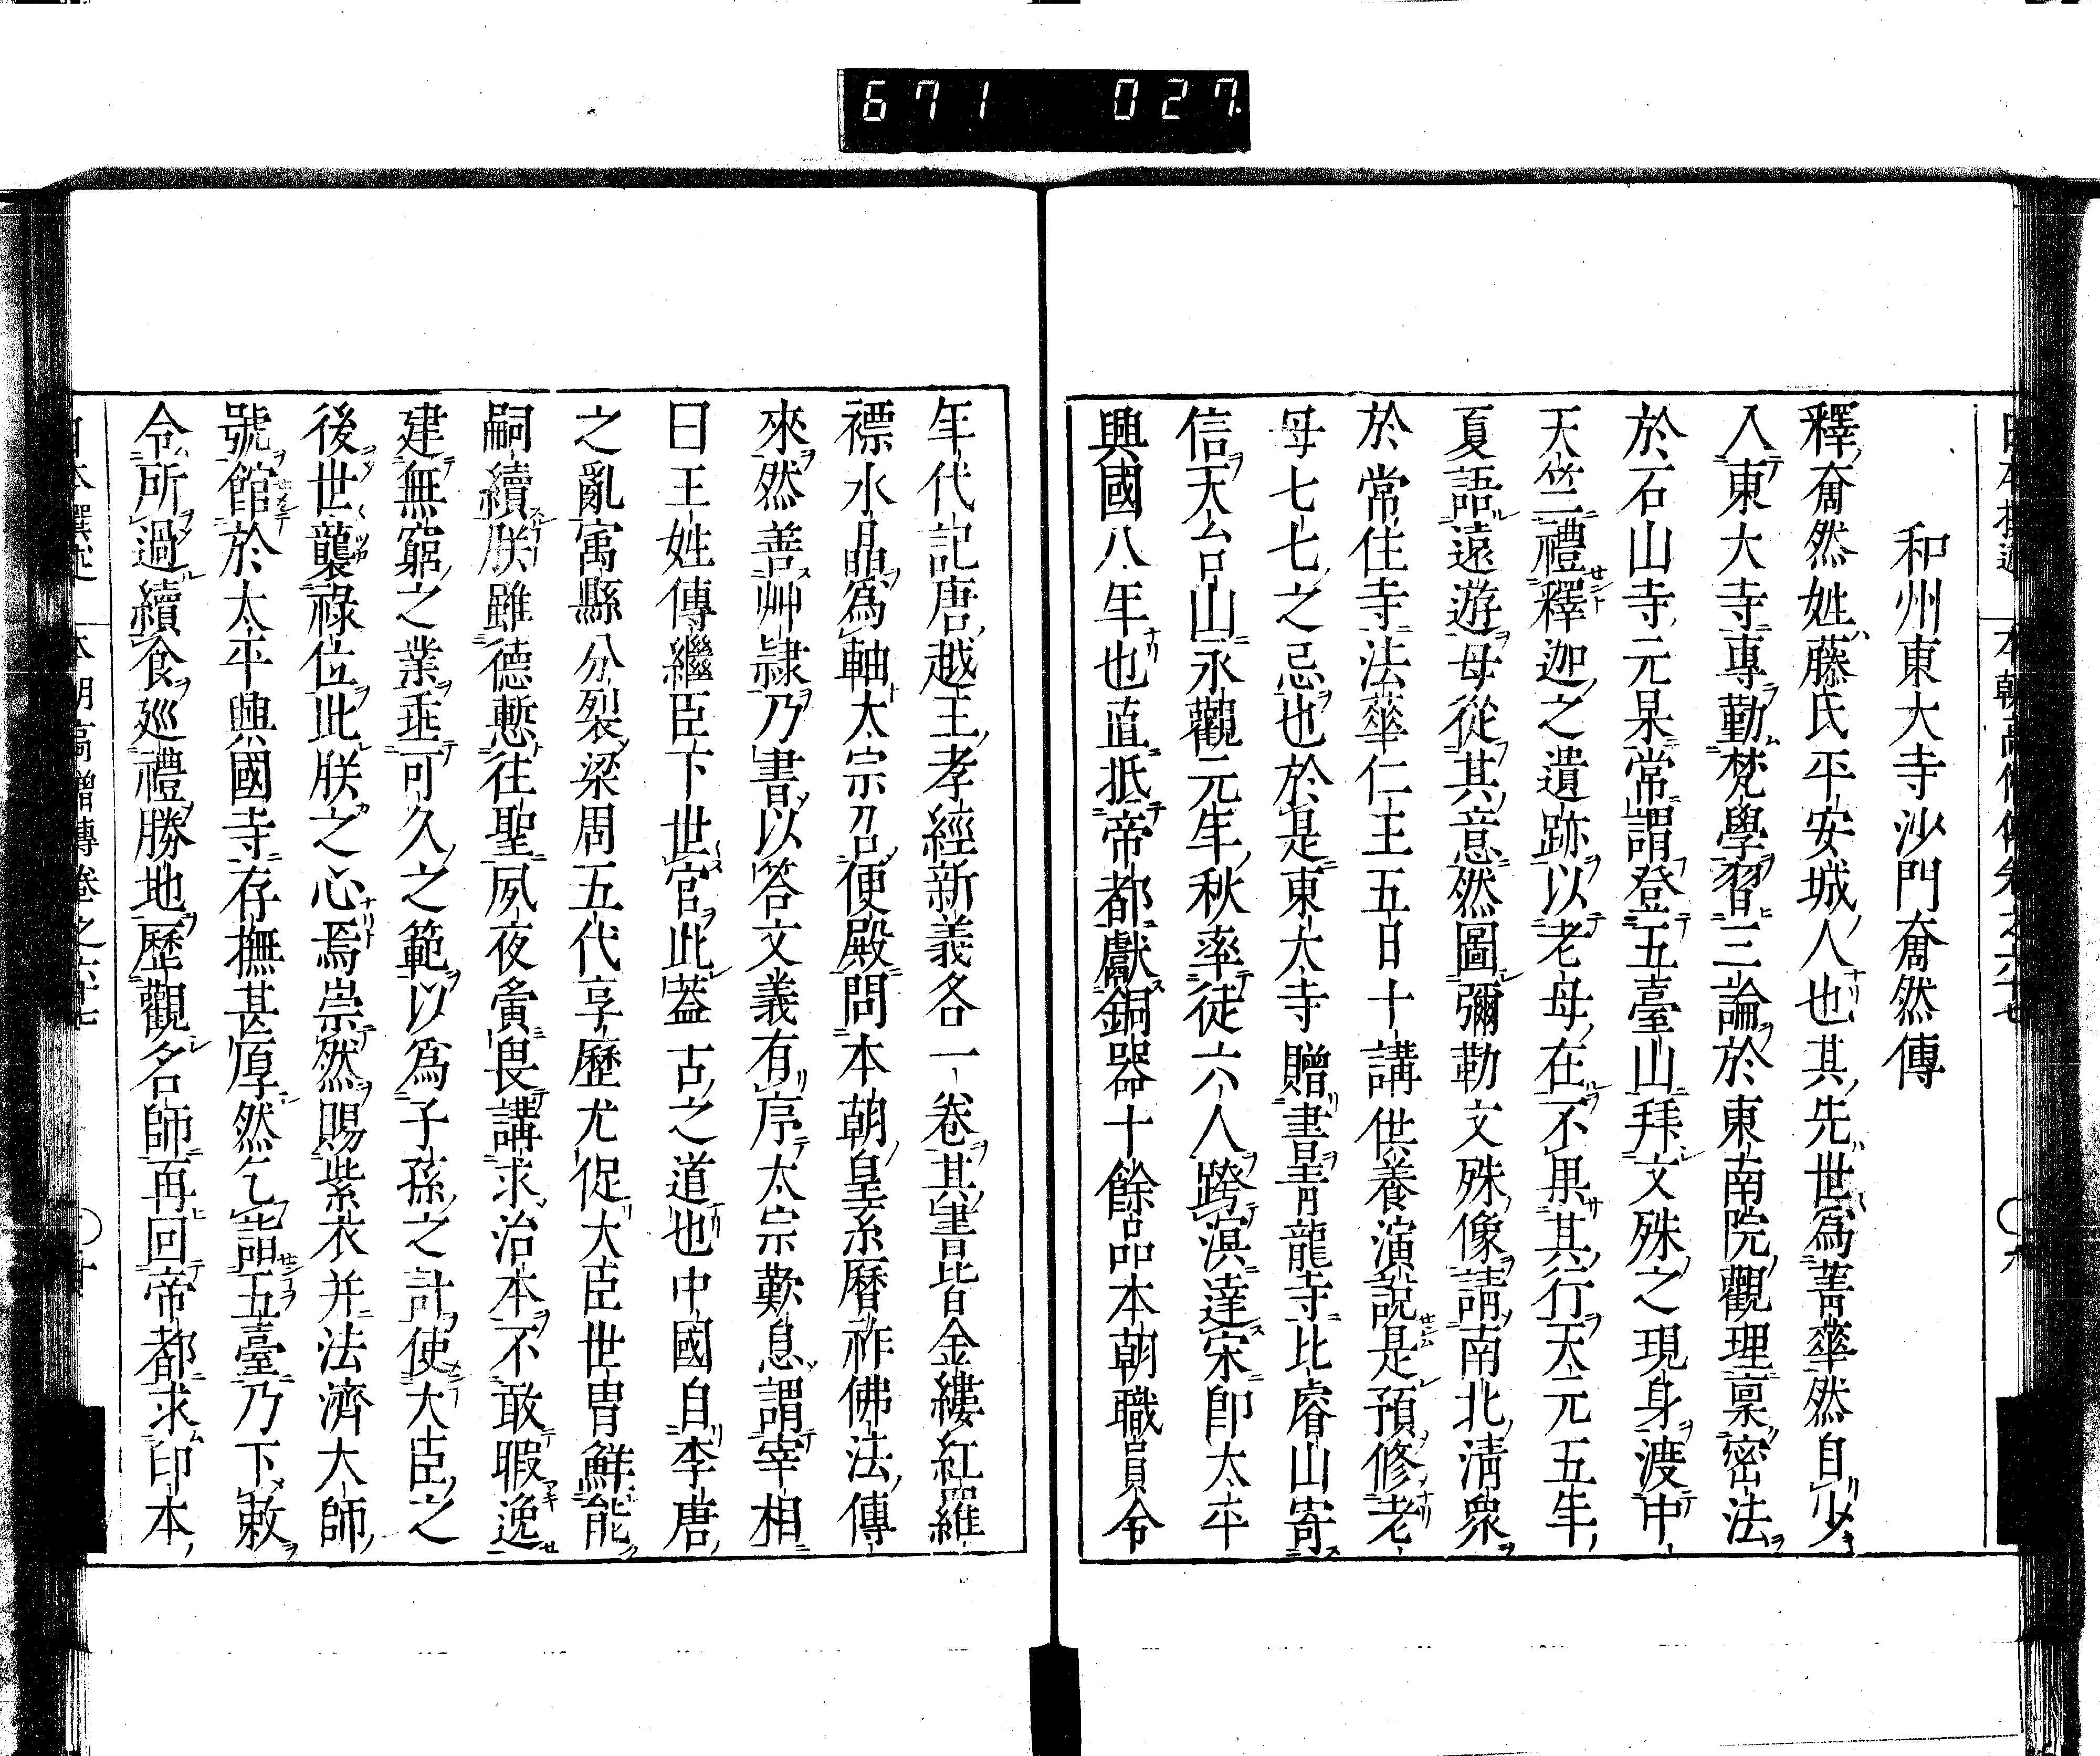 671 027
和州東大寺沙門奝然傳
釋奝然姓藤氏平安城人也其先世爲菁華然自少
入東大寺專勤梵學習三論於東南院觀理稟密法
於石山寺元杲常謂登五臺山拜文殊之現身渡中
天竺禮釋迦之遺跡以老母在不果其行天元五年
夏語遠遊母從其意然圖彌勒文殊像請南北淸衆
於常住寺法華仁王五日十講供養演說是預修老
母七七之忌也於是東大寺贈書青龍寺比睿山寄
信天台山永觀元年秋率徒六人跨溟達宋卽太平
興國八年也直抵帝都獻銅器十餘品本朝職員令
年代記唐越王孝經新義各一卷其書皆金縷紅羅
褾水晶爲軸太宗召便殿問本朝皇系曆祚佛法傳
來然善艸隷乃書以答文義有序太宗歎息謂宰相
曰王姓傳繼臣下世官此蓋古之道也中國自李唐
之亂寓縣分裂梁周五代享歷尤促大臣世冑鮮能
嗣續朕雖德慙往聖夙夜夤畏講求治本不敢暇逸
建無窮之業垂可久之範以爲子孫之計使大臣之
後世襲祿位此朕之心焉崇然賜紫衣并法濟大師
號館於太平興國寺存撫甚厚然乞詣五臺乃下敕
令所過續食巡禮勝地歷觀名師再回帝都求印本